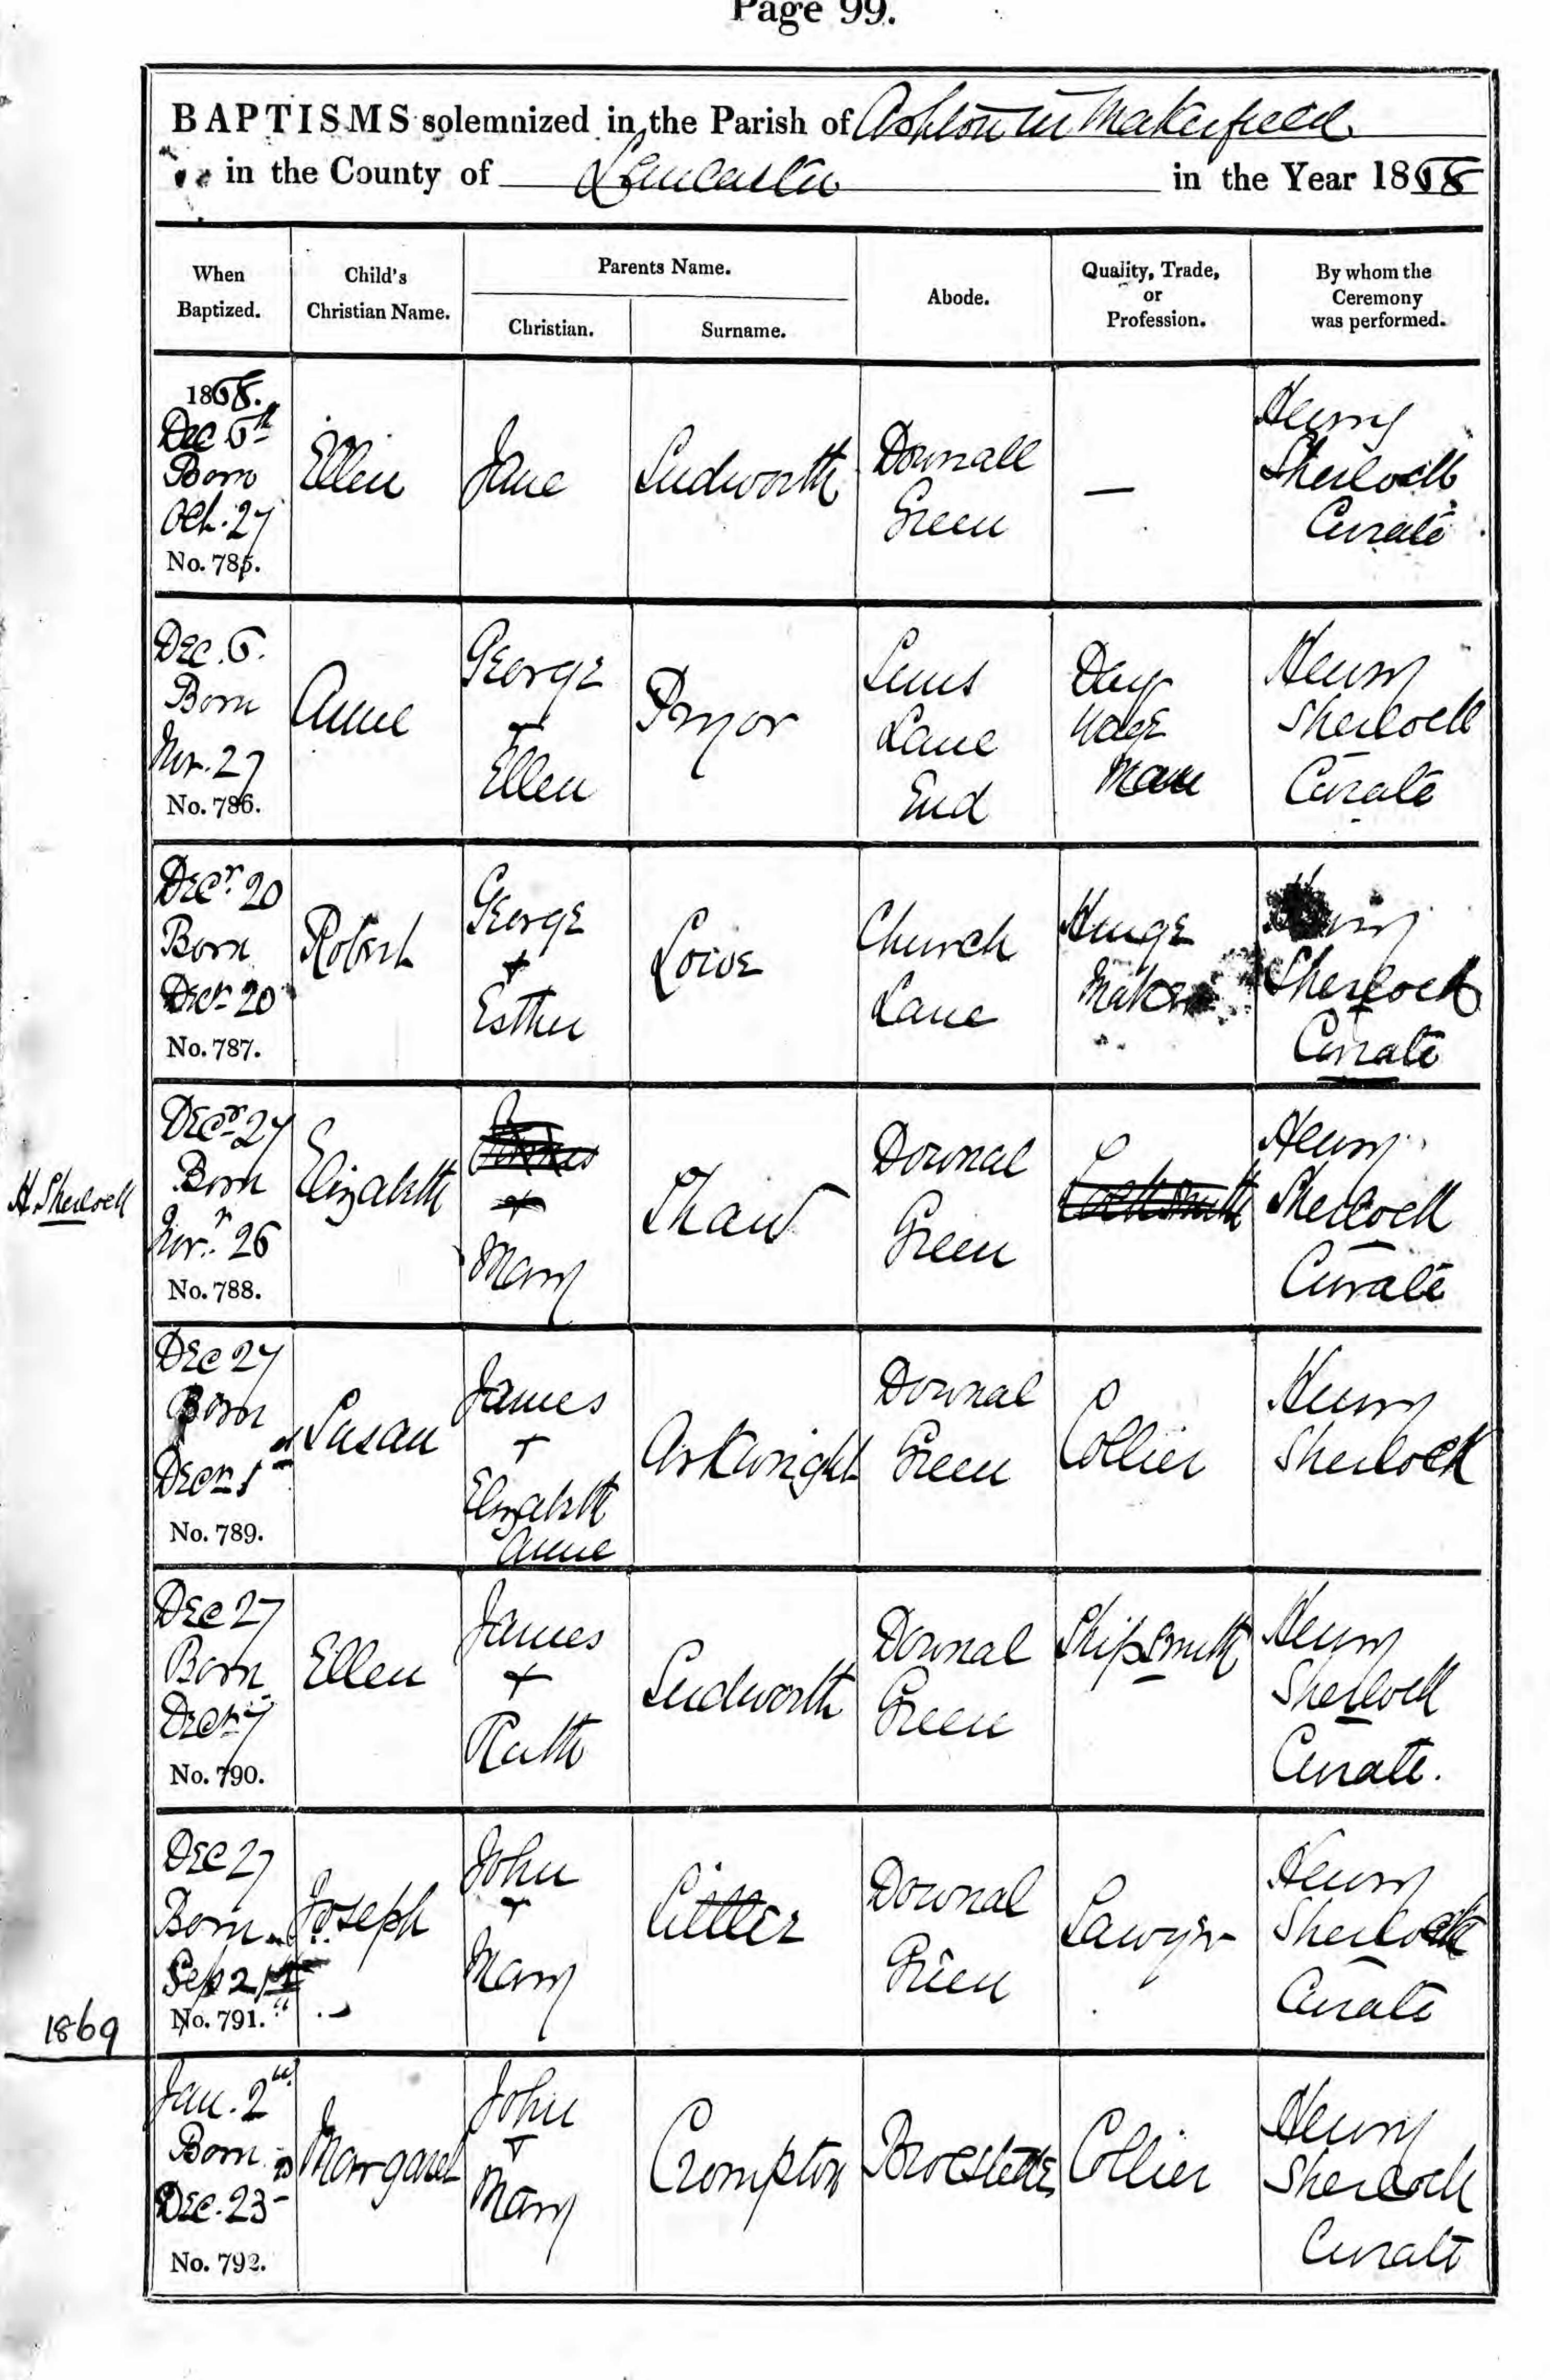 Page 99.
BAPTISMS solemnized in the Parish of Ashton in Makerfield
in the County of Lancaster in the Year 1868
When Baptized.
Child's Christian Name.
Parents Name.
Christian.
Surname.
Abode.
Quality, Trade, or Profession.
By whom the Ceremony was performed.
1868.
Dec 6th
Born
Oct. 27
No. 785.
Ellen
Jane
Sudworth
Downall
Green
—
Henry
Sherlock
Curate
Dec. 6.
Born
Nov. 27
No. 786.
Anne
George
+
Ellen
Pryor
Lane
End
Day
Wage
Man
Henry
Sherlock
Curate
Decr. 20
Born
Decr 20
No. 787.
Robert
George
+
Esther
Lowe
Church
Lane
Hinge
Maker
Henry
Sherlock
Curate
H. Sherlock
Decr 27
Born
Novr. 26
No. 788.
Elizabeth
+
Mary
Shaw
Downal
Green
Locksmith
Henry
Sherlock
Curate
Dec 27
Born
Decr 1st
No. 789.
Susan
James
+
Elizabeth
Anne
Arkwright
Downal
Green
Collier
Henry
Sherlock
Dec 27
Born
Decr 7
No. 790.
Ellen
James
+
Ruth
Sudworth
Downal
Green
Henry
Sherlock
Curate.
Dec 27
Born
Sep 21st
No. 791.
Joseph
John
+
Mary
Littler
Downal
Green
Sawyer
Henry
Sherlock
Curate
1869
Jan. 2nd
Born
Dec. 23
No. 792.
Margaret
John
+
Mary
Crompton
Collier
Henry
Sherlock
Curate